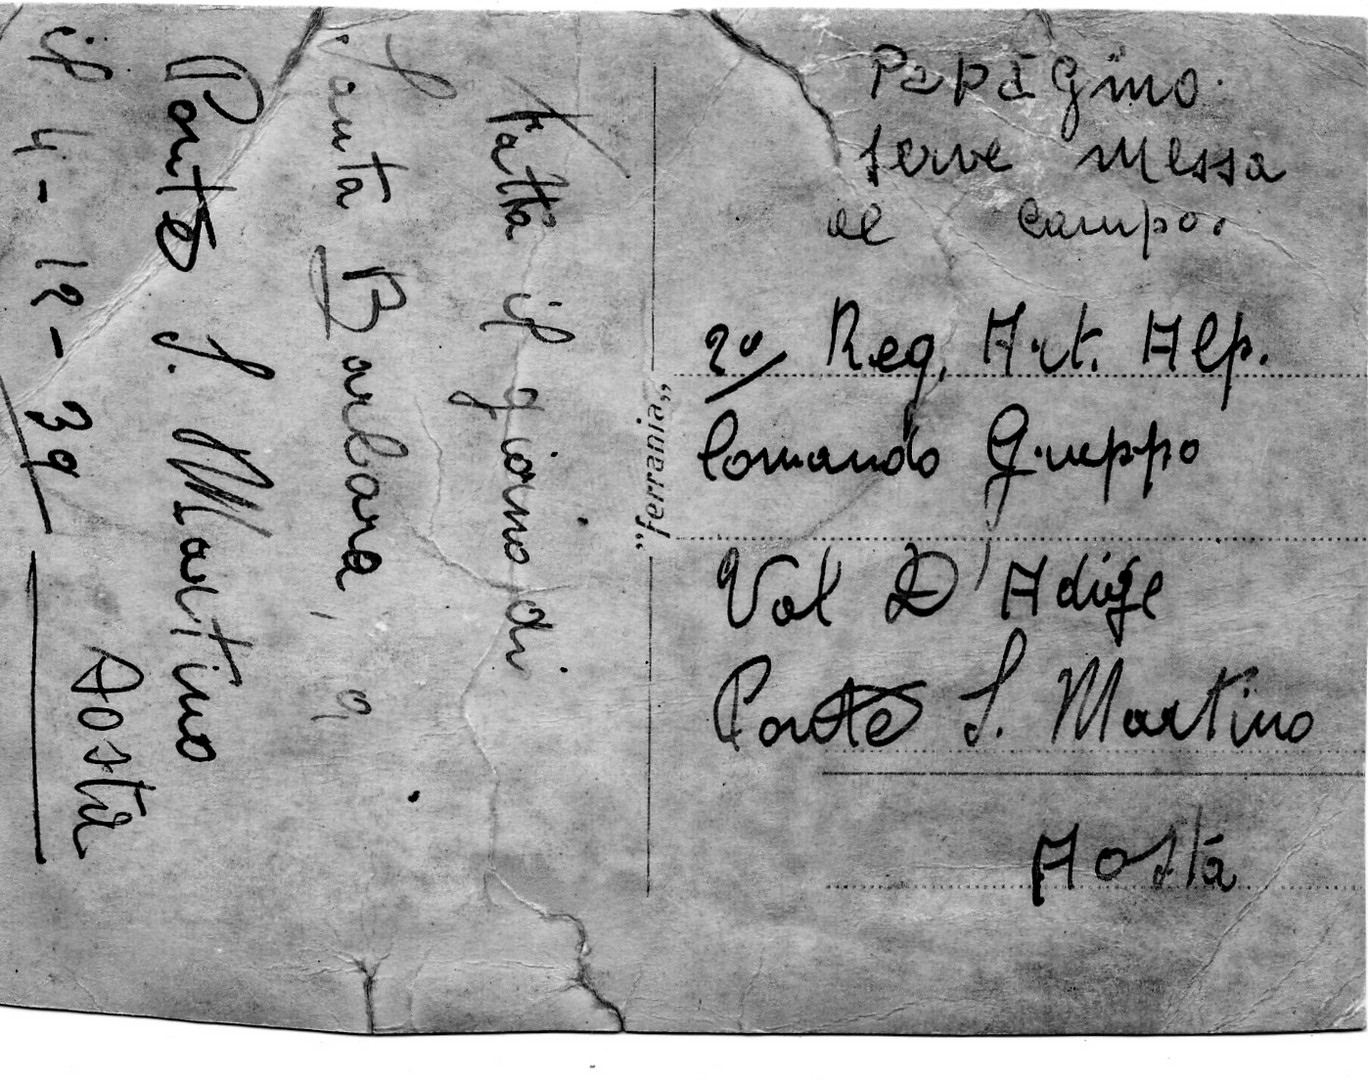 Fatta il giorno di
Santa Barbara, a
Ponte S. Martino
Aosta
il 4-12-39
„ferrania„
Papà Gino
serve Messa
al campo.
2º Reg. Art. Alp.
Comando Gruppo
Val D'Adige
Ponte S. Martino
Aosta